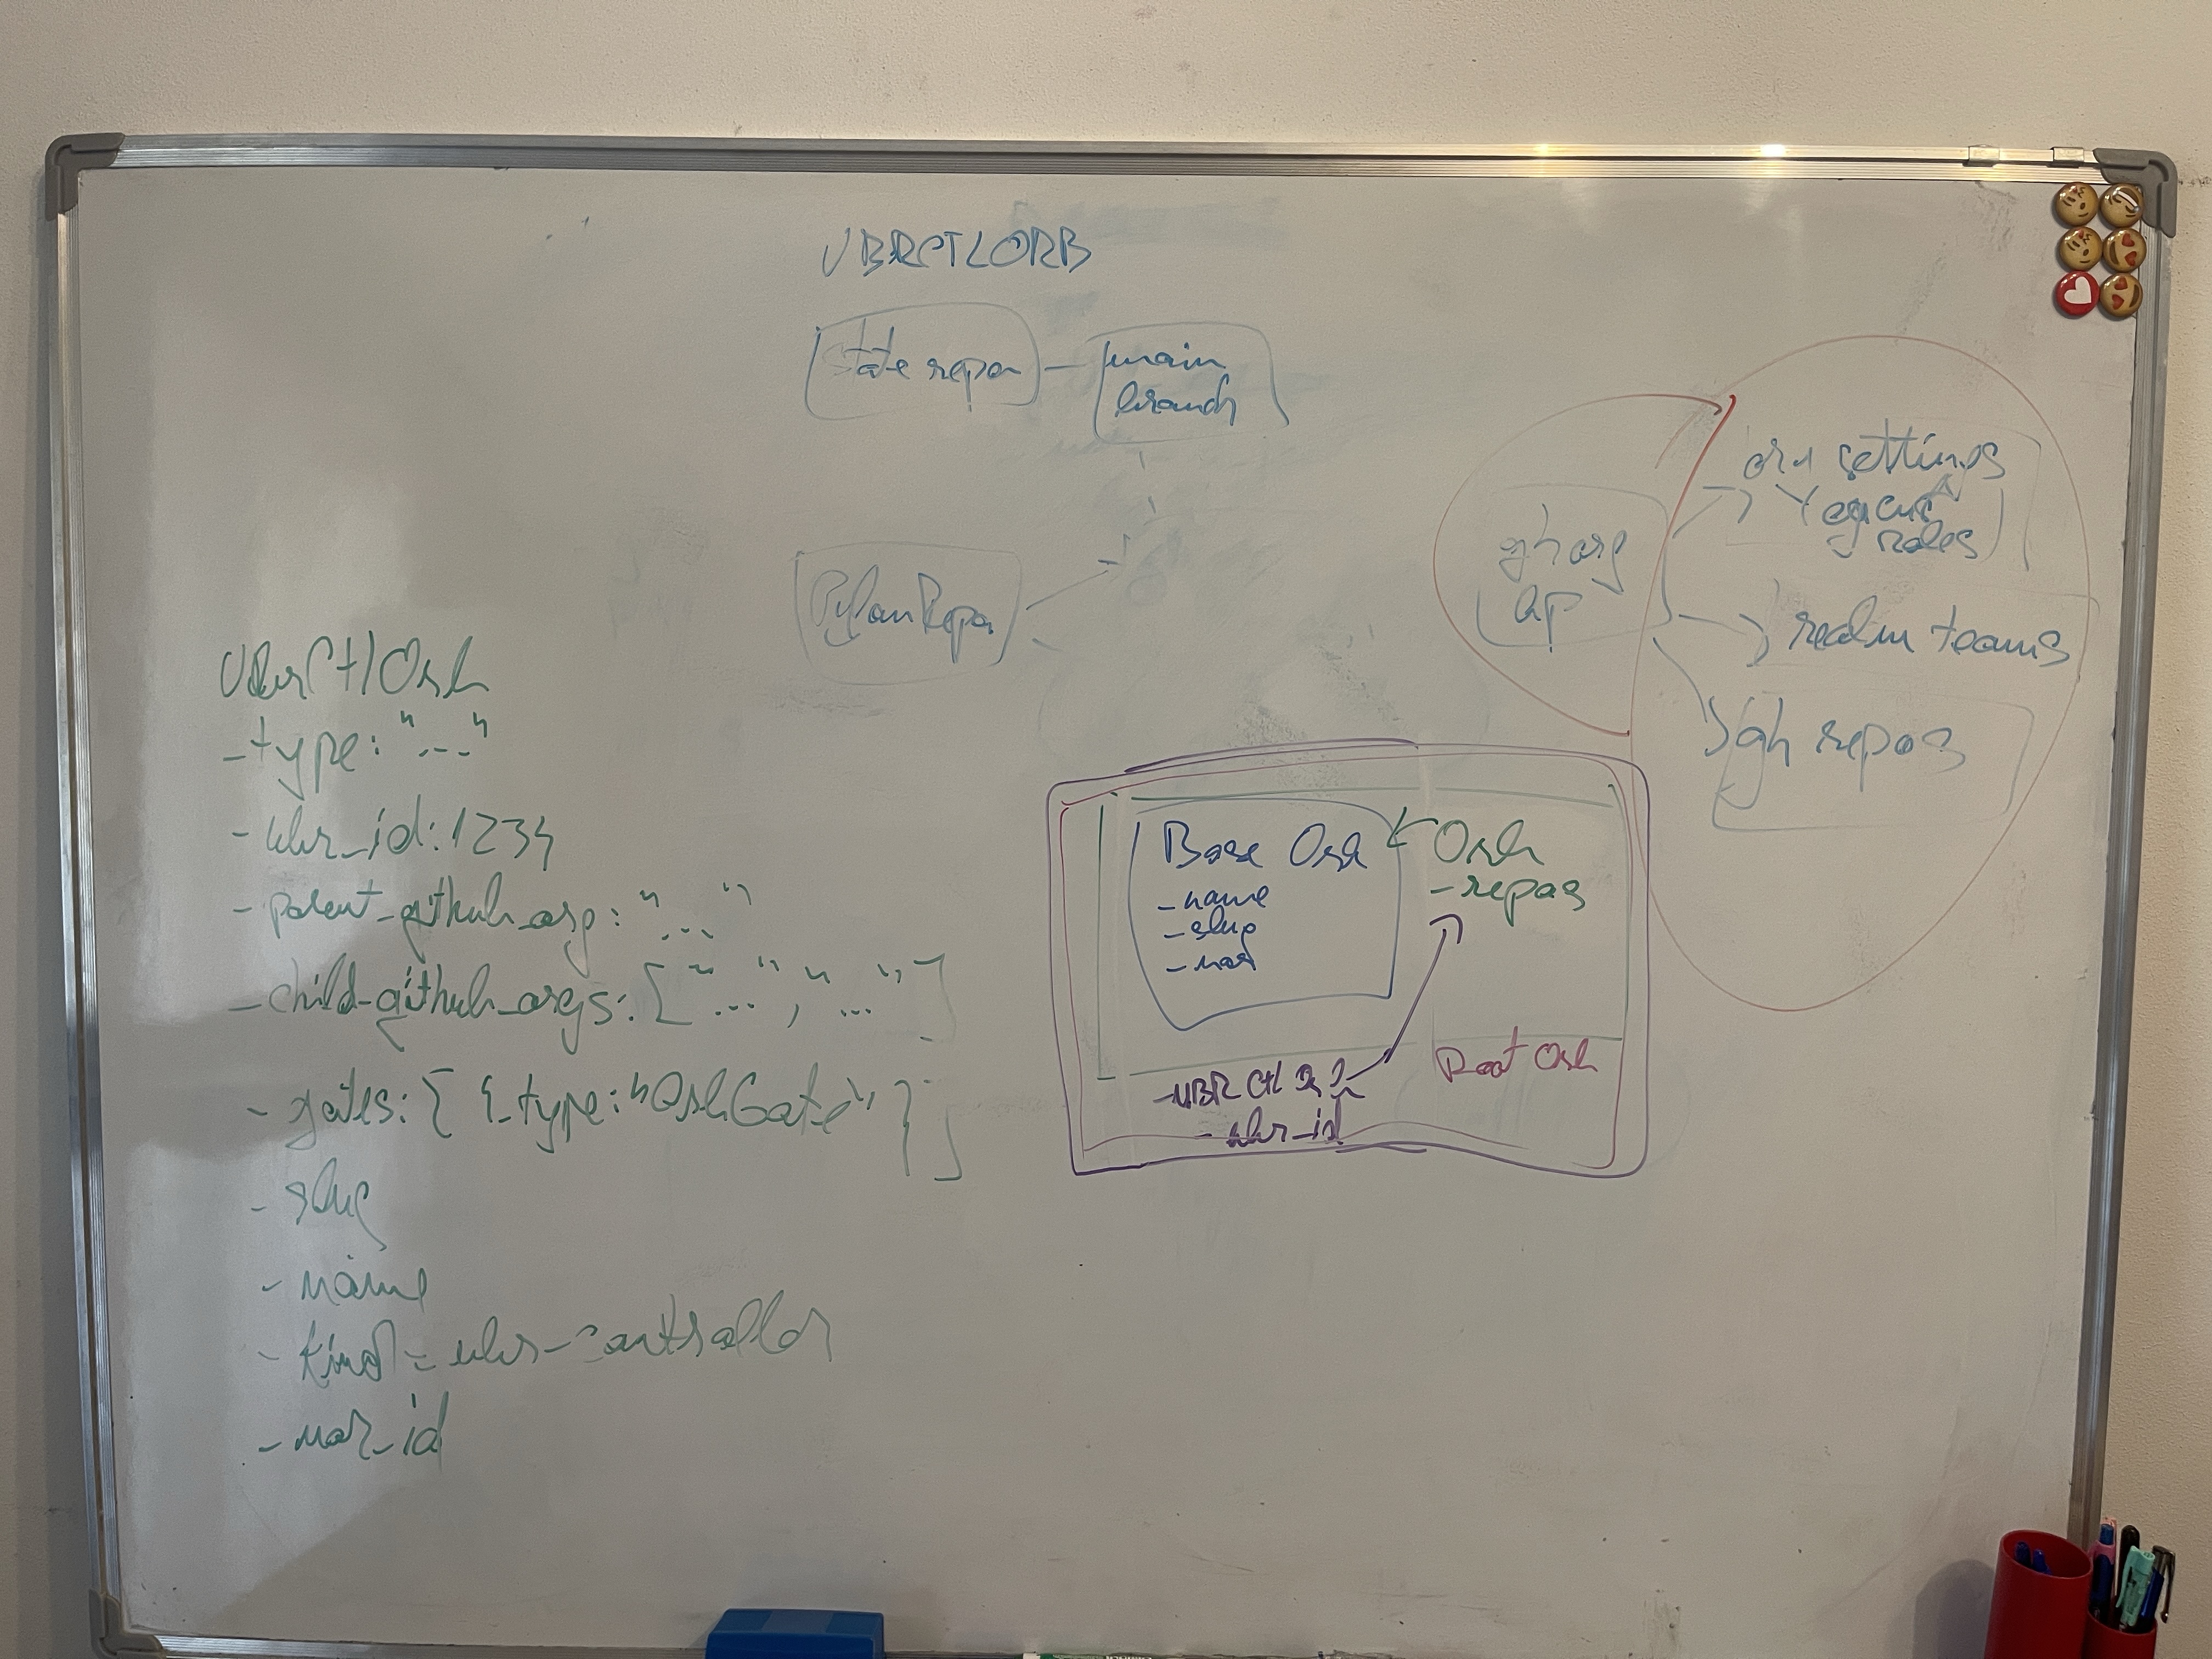 UBRCTLORB
state repo
main
branch
Pylon Repo
gh org
org settings
roles
realm teams
gh repos
UbrCtlOrb
- type: "..."
- ubr_id: 1234
- parent_github_org: "..."
- child_github_orgs: ["...", "..."]
- gates: [ { type: "OrbGate" } ]
- slug
- name
- kind = ubr-controller
- nar_id
Base Orb
- name
- slug
- nar
Orb
- repos
Root Orb
- UBR Ctl
- ubr_id